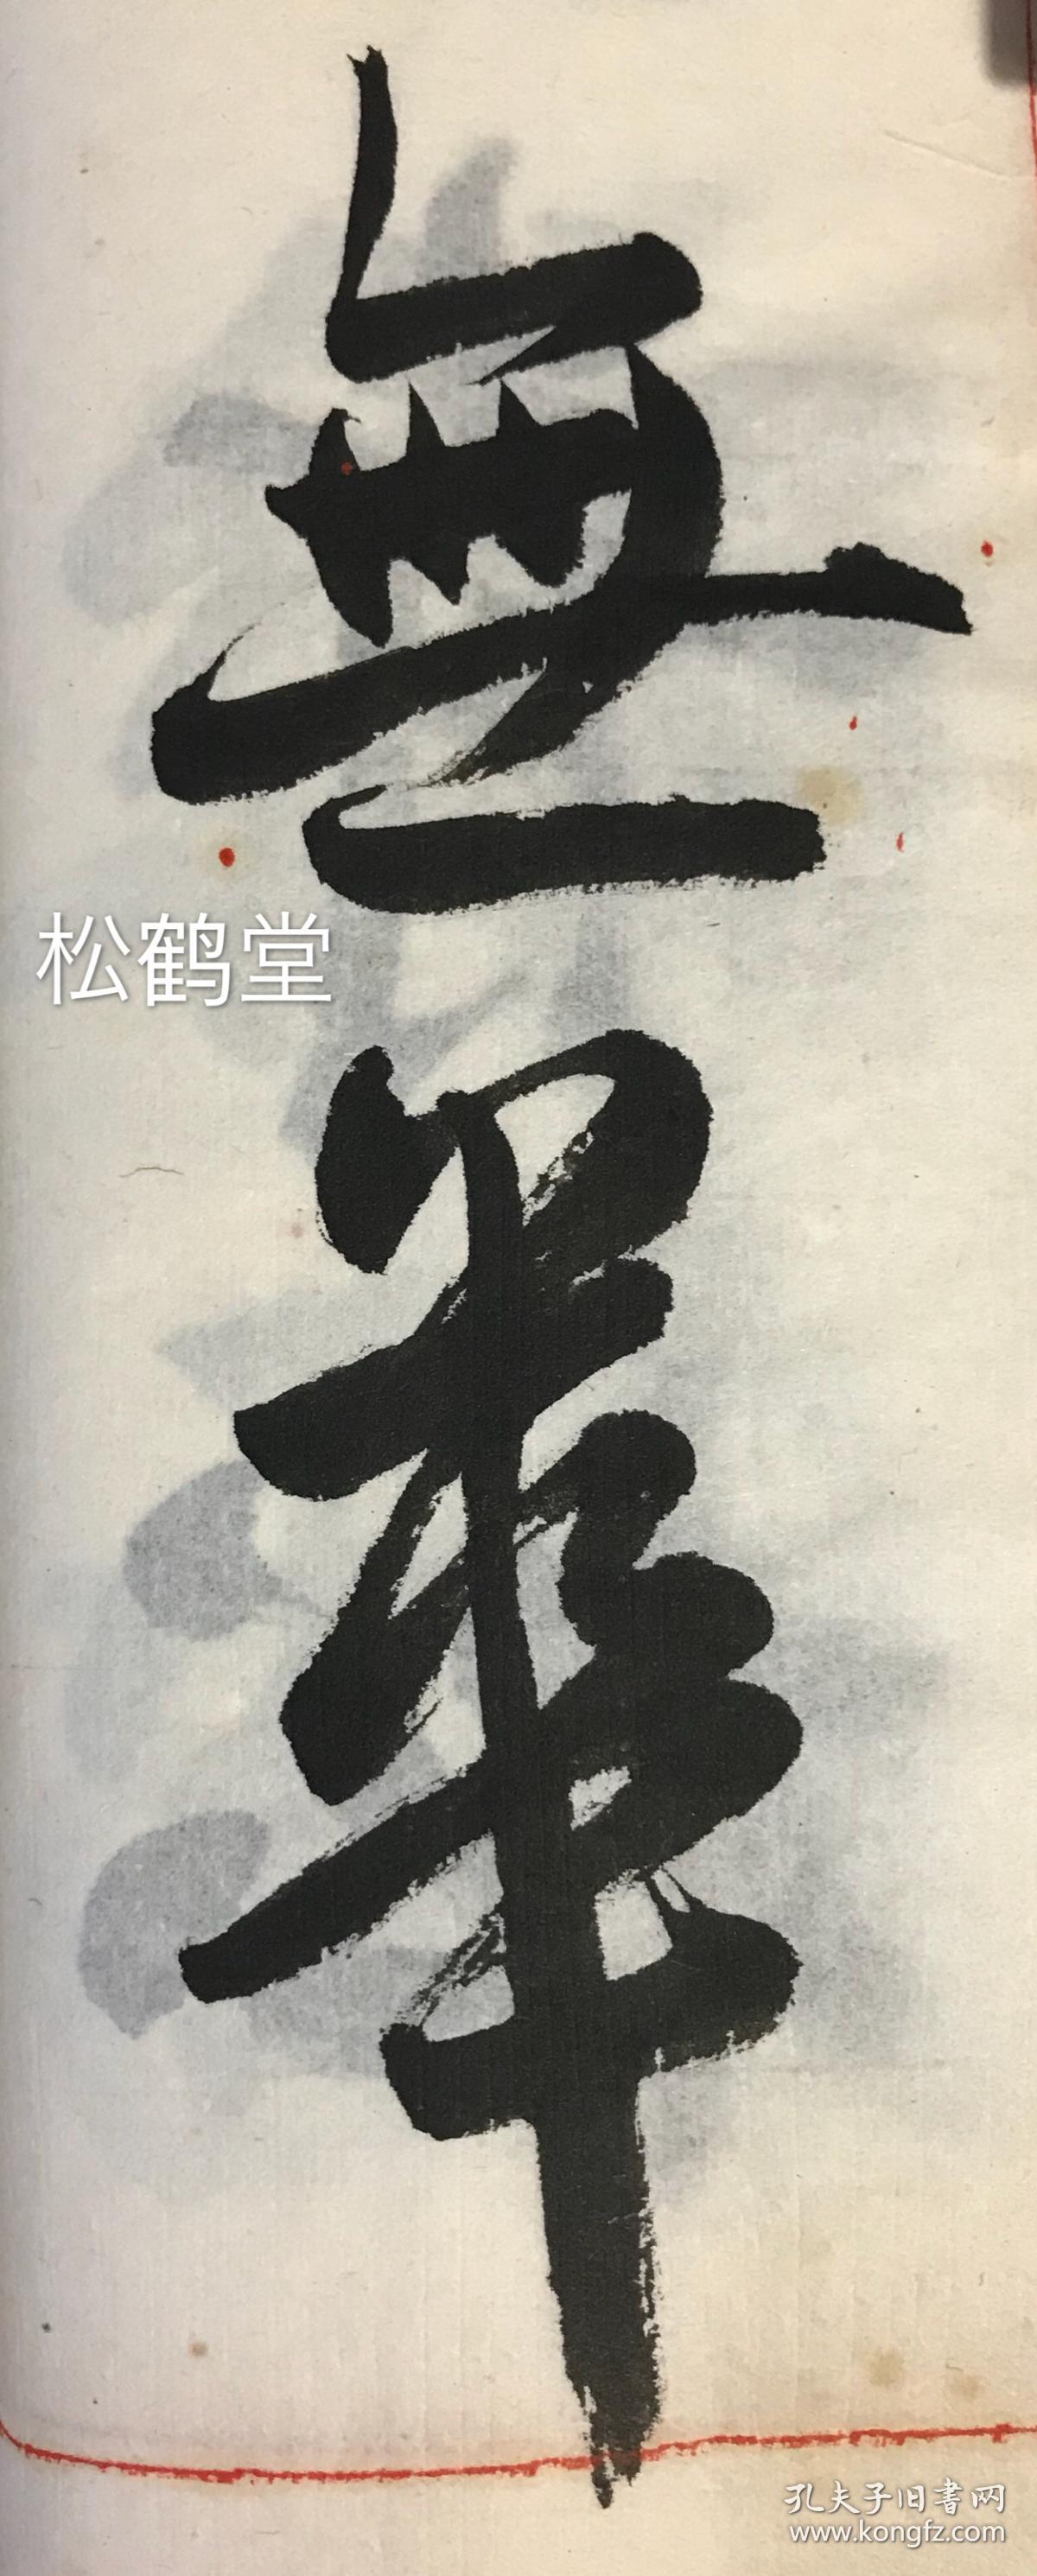 無華
松鹤堂
孔夫子旧書网
www.kongfz.com